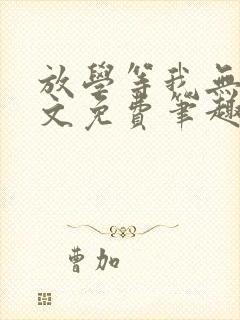 放學等我無
文免費筆趣
曹加